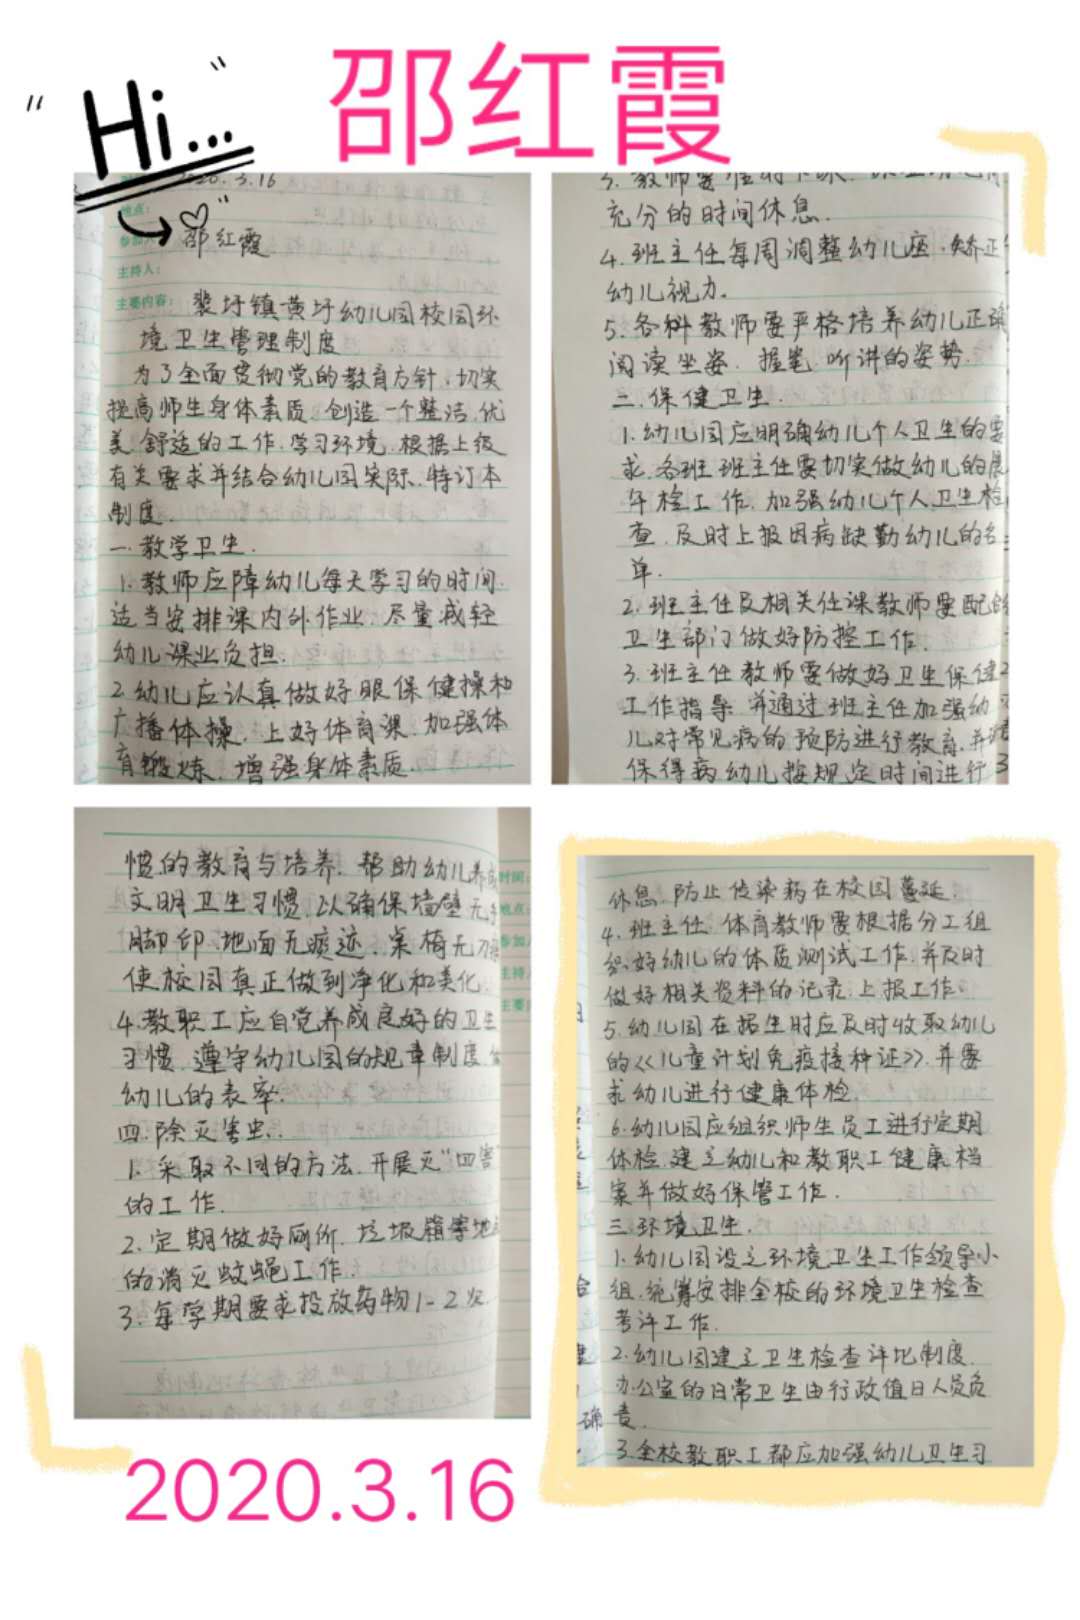 邵红霞
Hi...
2020.3.16
地点：
参加人 邵红霞
主持人：
主要内容： 裴圩镇黄圩幼儿园校园环
境卫生管理制度
为了全面贯彻党的教育方针，切实
提高师生身体素质，创造一个整洁、优
美、舒适的工作、学习环境，根据上级
有关要求并结合幼儿园实际，特订本
制度.
一.教学卫生.
1.教师应障幼儿每天学习的时间.
适当安排课内外作业，尽量减轻
幼儿课业负担.
2.幼儿应认真做好眼保健操和
广播体操，上好体育课，加强体
育锻炼，增强身体素质.
3.教师要准时下课，
充分的时间休息.
4.班主任每周调整幼儿座，矫正
幼儿视力。
5.各科教师要严格培养幼儿正确
阅读坐姿、握笔、听讲的姿势.
二.保健卫生.
1.幼儿园应明确幼儿个人卫生的要
求，各班班主任要切实做幼儿的晨
午检工作，加强幼儿个人卫生检
查，及时上报因病缺勤幼儿的名
单.
2.班主任及相关任课教师要配合
卫生部门做好防控工作.
3.班主任教师要做好卫生保健
工作指导，并通过班主任加强幼
儿对常见病的预防进行教育，并
保得病幼儿按规定时间进行
惯的教育与培养，帮助幼儿养成
文明卫生习惯，以确保墙壁无手
脚印、地面无痰迹、桌椅无刀
使校园真正做到净化和美化.
4.教职工应自觉养成良好的卫生
习惯，遵守幼儿园的规章制度，
幼儿的表率.
四.除灭害虫.
1.采取不同的方法，开展灭“四害”
的工作.
2.定期做好厕所、垃圾箱等地
的消灭蚊蝇工作.
3.每学期要求投放药物1-2次
时间：
地点：
参加人
主持人
主要
休息，防止传染病在校园蔓延.
4.班主任、体育教师要根据分工组
织好幼儿的体质测试工作，并及时
做好相关资料的记录、上报工作。
5.幼儿园在招生时应及时收取幼儿
的《儿童计划免疫接种证》，并要
求幼儿进行健康体检.
6.幼儿园应组织师生员工进行定期
体检，建立幼儿和教职工健康档
案并做好保管工作.
三.环境卫生.
1.幼儿园设立环境卫生工作领导小
组，统筹安排全校的环境卫生检查
考评工作.
2.幼儿园建立卫生检查评比制度.
办公室的日常卫生由行政值日人员负
责.
3.全校教职工都应加强幼儿卫生习
2020.3.16